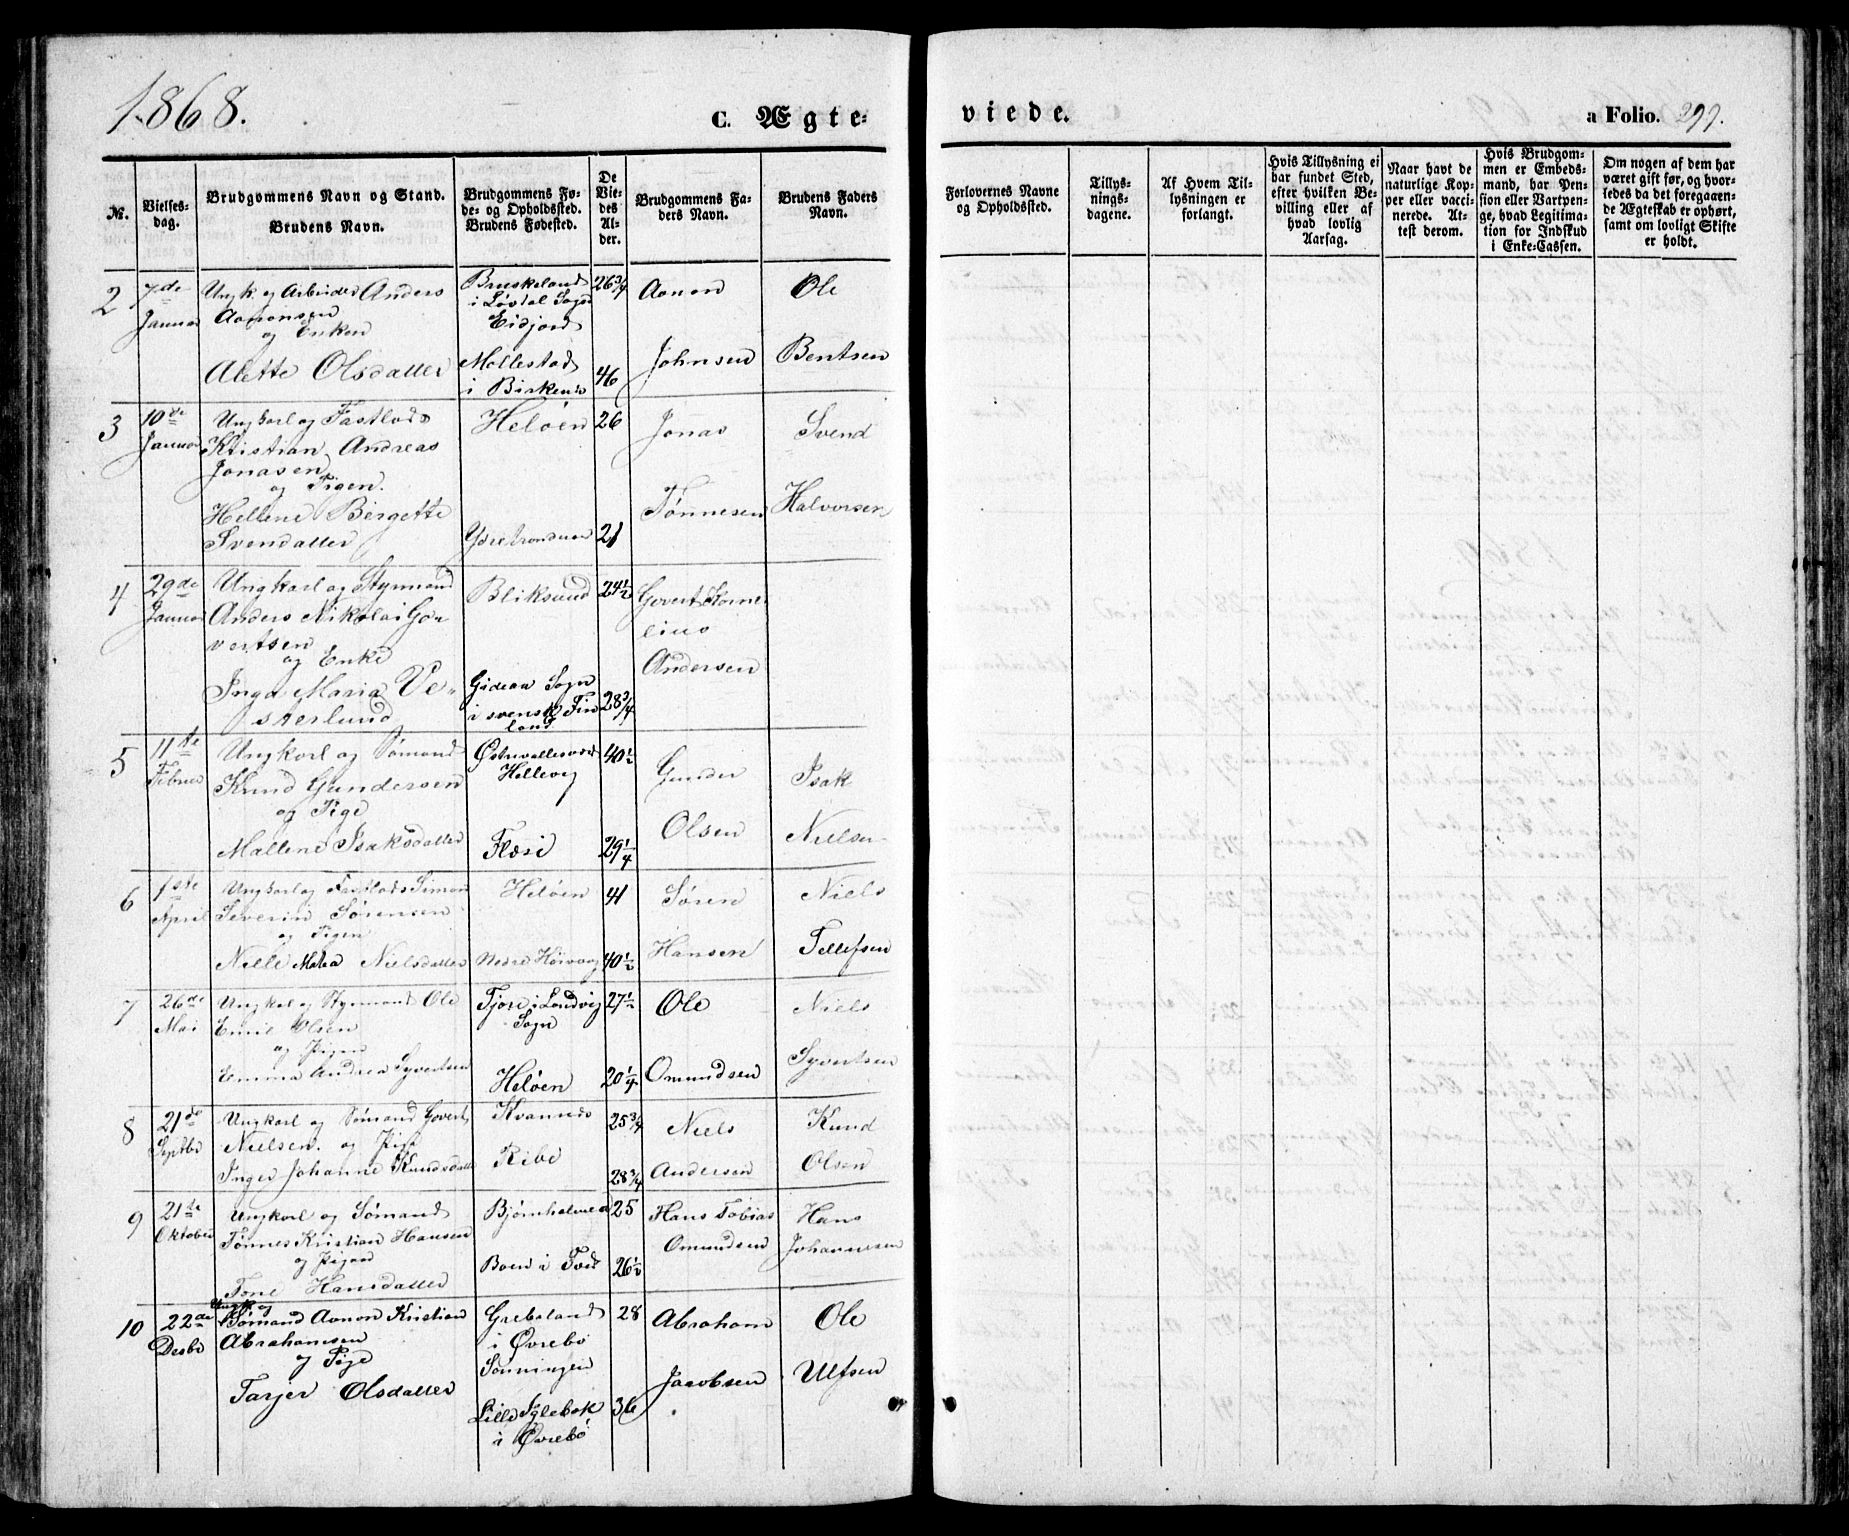 1868.
C. Ægte-
viede.
a Folio. 299.
No.
Vielses-
dag.
Brudgommens Navn og Stand.
Brudens Navn.
Brudgommens Fø-
de- og Opholdssted.
Brudens Fødested.
De
Vie-
des
Al-
der.
Brudgommens Fa-
ders Navn.
Brudens Faders
Navn.
Forlovernes Navne
og Opholdssted.
Tillys-
nings-
dagene.
Af Hvem Til-
lysningen er
forlangt.
Hvis Tillysning ei
har fundet Sted,
efter hvilken Be-
villing eller af
hvad lovlig
Aarsag.
Naar havt de
naturlige Kop-
per eller vacci-
nerede. At-
test derom.
Hvis Brudgom-
men er Embeds-
mand, har Pen-
sion eller Vartpen-
ge, hvad Legitima-
tion for Indskud
i Enke-Cassen.
Om nogen af dem har
været gift før, og hvor-
ledes da det foregaaen-
de Ægteskab er ophørt,
samt om lovligt Skifte
er holdt.
2
7de
Januar
Ungk. og Arbeider Anders
Aanonsen
og Enken
Alette Olsdatter
i Løvdal Sogn
Eidjord
Mollestad
i Birkenes
26 3/4
46
Aanon
Johnsen
Ole
Bentsen
3
10de
Januar
Ungkarl og Fastlods
Kristian Andreas
Jonasen
og Pigen.
Hellene Birgette
Svendatter
Heløen
26
21
Jonas
Tønnesen
Svend
Halvorsen
4
29de
Januar
Ungkarl og Styrmand
Anders Nikolai Go-
vertsen
og Enke
Inga Maria Ve-
sterlund
Bliksund
Gidean Sogn
i svensk Fin
land
24 1/2
28 3/4
Govert Korne
lius
Andersen
5
11te
Februar
Ungkarl og Sømand
Knud Gundersen
og Pige
Mallene Isaksdatter
Hellevig
Flosi
40 1/2
29 1/4
Gunder
Olsen
Isak
Nielsen
6
1ste
April
Ungkarl og Fastlods Simon
Severin Sørensen
og Pigen
Nille Maria Nielsdatter
Heløen
Nedre
41
40 1/2
Søren
Hansen
Niels
Tellefsen
7
26de
Mai
Ungkarl og Styrmand Ole
Emil Olsen
og Pigen
Emma Andrea Syvertsen
Fjore i Landvig
Sogn
Heløen
27 1/2
20 1/4
Ole
Omundsen
Niels
Syvertsen
8
21de
Septbr
Ungkarl og Sømand Govert
Nielsen. og Pige
Inger Johanne Knudsdatter
Kvannes
Ribe
25 3/4
28 3/4
Niels
Andersen
Knud
Olsen
9
21te
Oktober
Ungkarl og Sømand
Tønnes Kristian Hansen
og Pigen
Tone Hansdatter
Bjørnholmen
Boen i Tveit
25
26 1/2
Hans Tobias
Omundsen
Hans
Johannesen
10
22de
Desbr
Ungk. og
Sømand Aanon Kristian
Abrahamsen
og Pige
Tarjer Olsdatter
Grebeland
i Øvrebø
Lille Iglebæk
i Øvrebø
28
36
Abraham
Jacobsen
Ole
Ulfsen